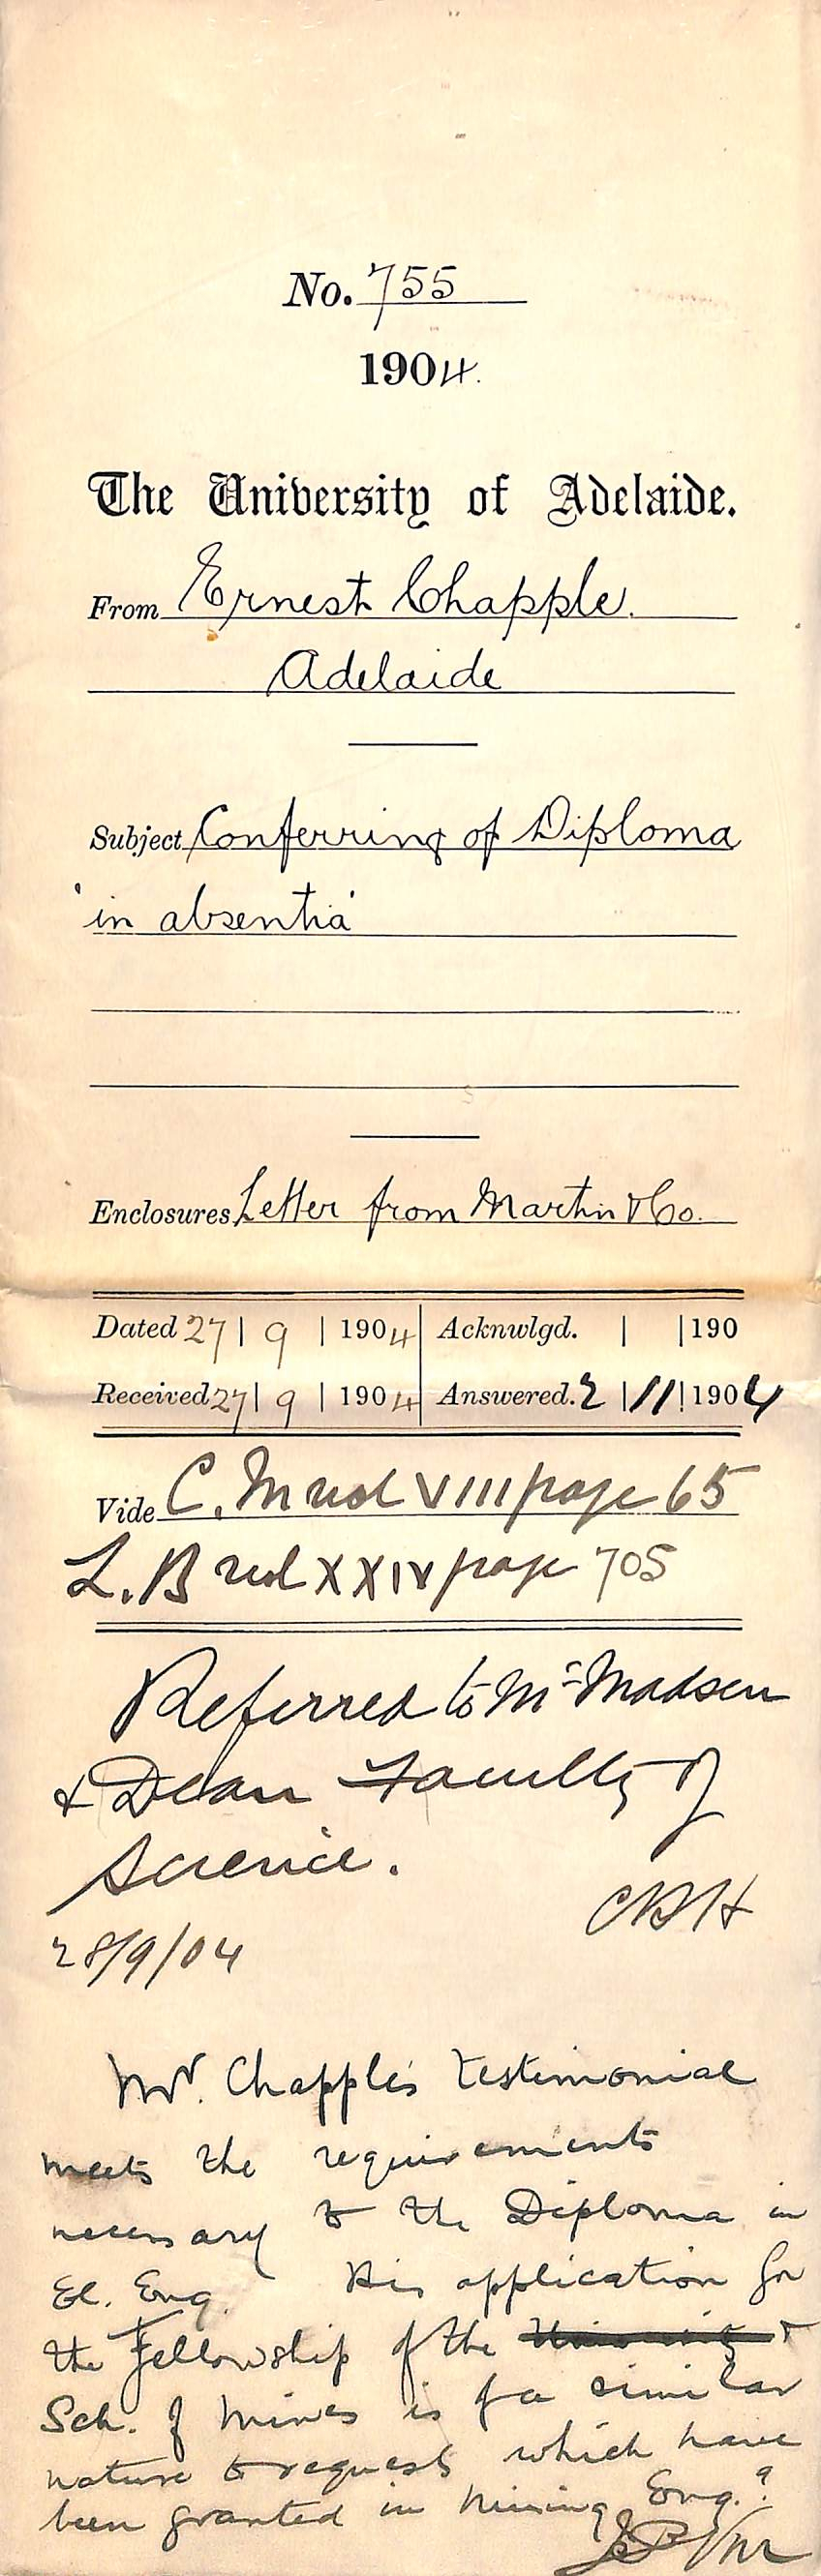 No. 755
1904.
The University of Adelaide.
From Ernest Chapple.
Adelaide
Subject Conferring of Diploma
'in absentia'
Enclosures Letter from Martin & Co.
Dated 27 | 9 | 1904 Acknwlgd. | | 190
Received 27 | 9 | 1904 Answered. 2 | 11 | 1904
Vide C. M vol VIII page 65
L. B vol XXIV page 705
Referred to Mr Madsen
& Dean Faculty of
Science.
CRH
28/9/04
Mr. Chapple's testimonial
meets the requirements
necessary to the Diploma in
El. Eng. His application for
the Fellowship of the
Sch. of Mines is of a similar
nature to requests which have
been granted in Mining Eng.